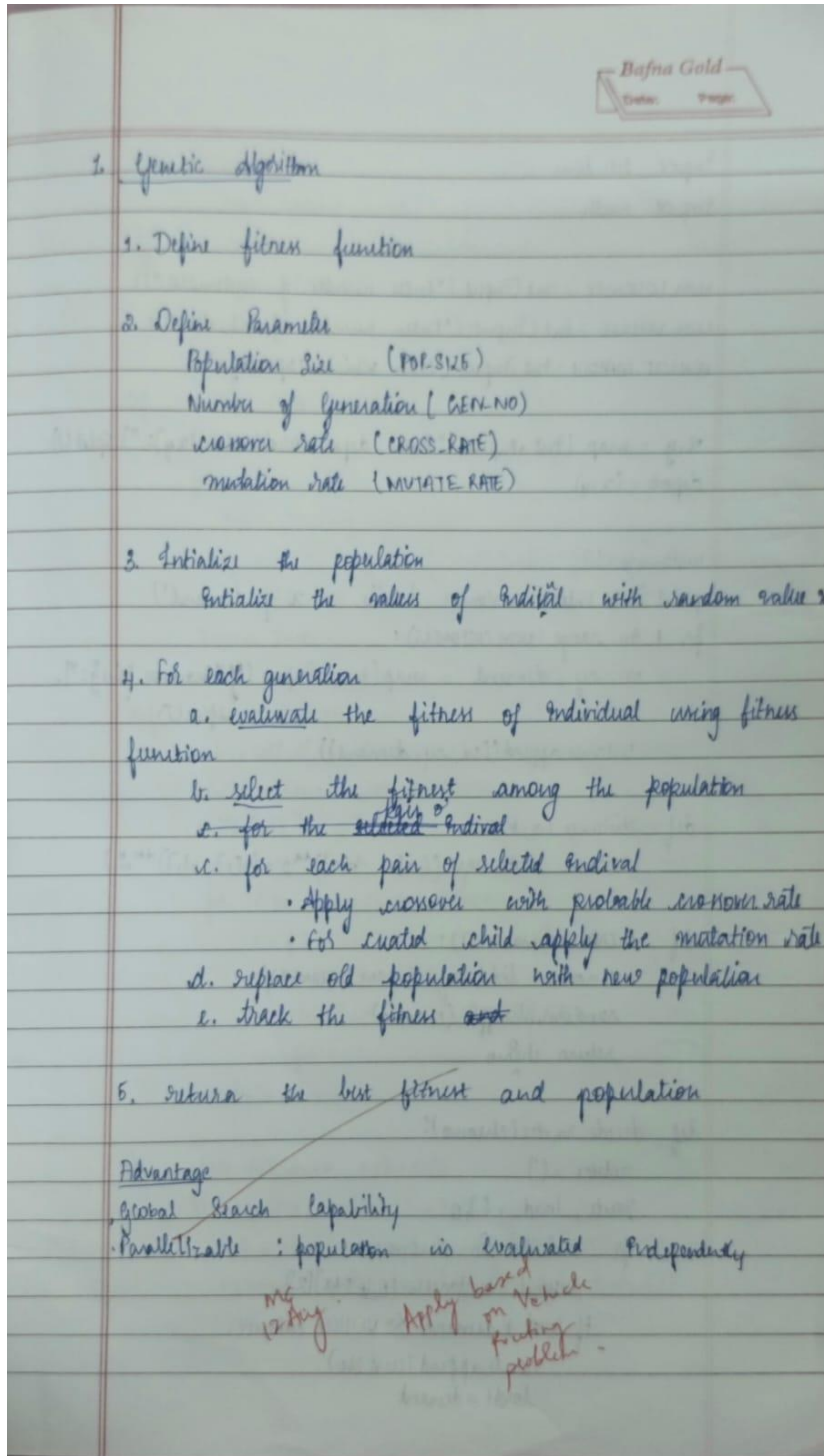 Bafna Gold
Date: Page:
1. Genetic Algorithm
1. Define fitness function
2. Define Parameter
Population Size (POP_SIZE)
Number of Generation (GEN_NO)
crossover rate (CROSS_RATE)
mutation rate (MUTATE_RATE)
3. Intialize the population
Intialize the values of indival with random value
4. For each generation
a. evaluwate the fitness of individual using fitness
function
b. select the fitnest among the population
pair of
c. for the selected indival
c. for each pair of selected indival
• Apply crossover with probable crossover rate
• For cuated child apply the mutation rate
d. replace old population with new population
e. track the fitness and
5. return the best fitnest and population
Advantage
. Global Search Capability
. Parallelizable : population is evaluated independently
12 Aug
Apply based
on Vehicle
Routing
problem.